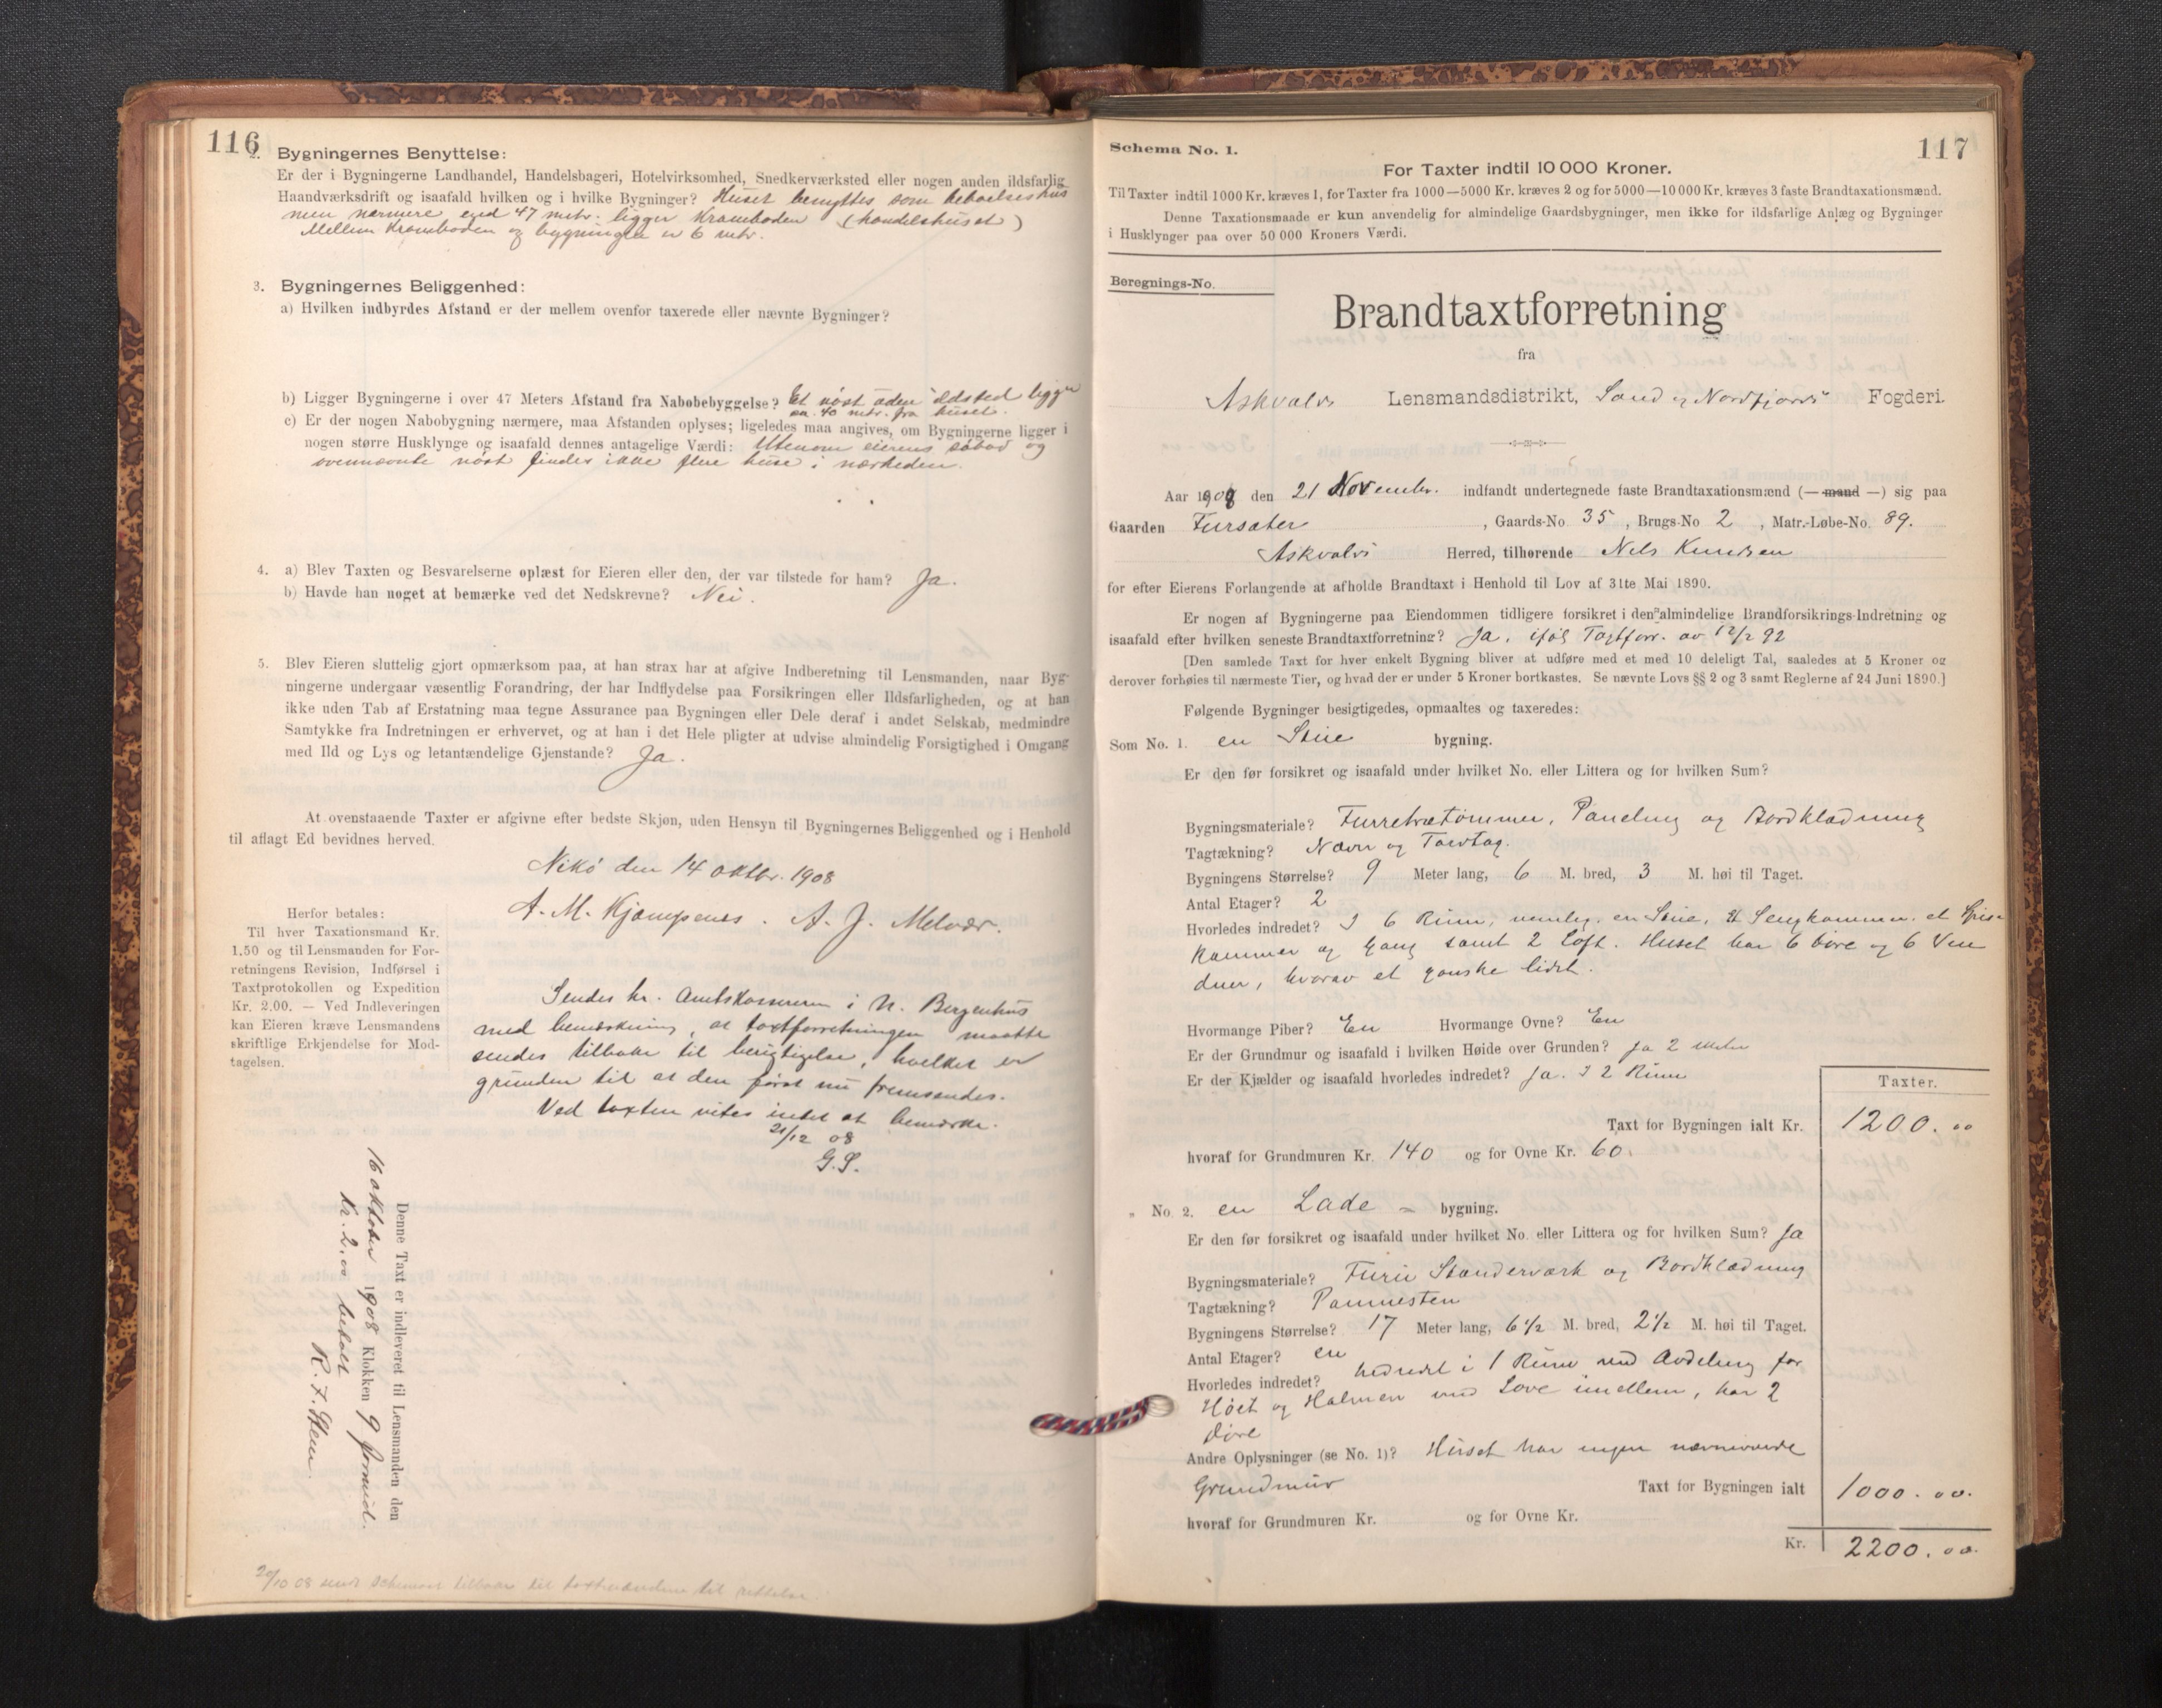 116
2. Bygningernes Benyttelse:
Er der i Bygningerne Landhandel, Handelsbageri, Hotelvirksomhed, Snedkerværksted eller nogen anden ildsfarlig
Haandværksdrift og isaafald hvilken og i hvilke Bygninger? Huset benyttes som beboelseshus
men nærmere end 47 mtr. ligger Kramboden (handelshuset)
Mellem Kramboden og bygningen er 6 mtr.
3. Bygningernes Beliggenhed:
a) Hvilken indbyrdes Afstand er der mellem ovenfor taxerede eller nævnte Bygninger?
b) Ligger Bygningerne i over 47 Meters Afstand fra Nabobebyggelse? Et nöst uden ildsted ligger
ca. 40 mtr. fra huset.
c) Er der nogen Nabobygning nærmere, maa Afstanden oplyses; ligeledes maa angives, om Bygningerne ligger i
nogen større Husklynge og isaafald dennes antagelige Værdi: Utenom eierens söbod og
ovennævnte nöst findes ikke flere huse i nærheden.
4. a) Blev Taxten og Besvarelserne oplæst for Eieren eller den, der var tilstede for ham? Ja.
b) Havde han noget at bemærke ved det Nedskrevne? Nei.
5. Blev Eieren sluttelig gjort opmærksom paa, at han strax har at afgive Indberetning til Lensmanden, naar Byg-
ningerne undergaar væsentlig Forandring, der har Indflydelse paa Forsikringen eller Ildsfarligheden, og at han
ikke uden Tab af Erstatning maa tegne Assurance paa Bygningen eller Dele deraf i andet Selskab, medmindre
Samtykke fra Indretningen er erhvervet, og at han i det Hele pligter at udvise almindelig Forsigtighed i Omgang
med Ild og Lys og letantændelige Gjenstande? Ja.
At ovenstaaende Taxter er afgivne efter bedste Skjøn, uden Hensyn til Bygningernes Beliggenhed og i Henhold
til aflagt Ed bevidnes herved.
Nikö den 14 oktbr. 1908
A. M. Kjempenes. A. J. Melvær.
Herfor betales:
Til hver Taxationsmand Kr.
1.50 og til Lensmanden for For-
retningens Revision, Indførsel i
Taxtprotokollen og Expedition
Kr. 2.00. — Ved Indleveringen
kan Eieren kræve Lensmandens
skriftlige Erkjendelse for Mod-
tagelsen.
Sendes hr. Amtskassereren i N. Bergenhus
med bemærkning, at taxtforretningen maatte
sendes tilbake til berigtigelse, hvilket er
grunden til at den först nu fremsendes.
Ved taxten vites intet at bemærke.
21/12 08
G.S.
Denne Taxt er indleveret til Lensmanden den
16 oktober 1908 Klokken 9 formid.
Kr. 2.00 betalt
20/10 08 sendt schemaet tilbake til taxtmændene til rettelse
117
Schema No. 1.
For Taxter indtil 10 000 Kroner.
Til Taxter indtil 1000 Kr. kræves 1, for Taxter fra 1000—5000 Kr. kræves 2 og for 5000—10 000 Kr. kræves 3 faste Brandtaxationsmænd.
Denne Taxationsmaade er kun anvendelig for almindelige Gaardsbygninger, men ikke for ildsfarlige Anlæg og Bygninger
i Husklynger paa over 50 000 Kroners Værdi.
Beregnings-No.
Brandtaxtforretning
fra
Askvolds Lensmandsdistrikt, Sønd og Nordfjords Fogderi.
Aar 1908 den 21 Novembr. indfandt undertegnede faste Brandtaxationsmænd (— mand —) sig paa
Gaarden Fursæter, Gaards-No. 35, Brugs-No 2, Matr.-Løbe-No. 89.
Askvolds Herred, tilhørende Nels Knudsen
for efter Eierens Forlangende at afholde Brandtaxt i Henhold til Lov af 31te Mai 1890.
Er nogen af Bygningerne paa Eiendommen tidligere forsikret i den almindelige Brandforsikrings-Indretning og
isaafald efter hvilken seneste Brandtaxtforretning? Ja, iføl Taxtforr. av 12/2 92
[Den samlede Taxt for hver enkelt Bygning bliver at udføre med et med 10 deleligt Tal, saaledes at 5 Kroner og
derover forhøies til nærmeste Tier, og hvad der er under 5 Kroner bortkastes. Se nævnte Lovs §§ 2 og 3 samt Reglerne af 24 Juni 1890.]
Følgende Bygninger besigtigedes, opmaaltes og taxeredes:
Som No. 1. en Stue bygning.
Er den før forsikret og isaafald under hvilket No. eller Littera og for hvilken Sum?
Bygningsmateriale? Furretrætømmer, Paneling og Bordklædning
Tagtækning? Næver og Torvtag.
Bygningens Størrelse? 9 Meter lang, 6 M. bred, 3 M. høi til Taget.
Antal Etager? 2
Hvorledes indredet? I 6 Rum, nemlig. en Stue, et Sengkammer. et Spise
Kammer og Gang samt 2 Loft. Huset har 6 Døre og 6 Vin
duer, hvorav et ganske lidet.
Hvormange Piber? En Hvormange Ovne? En
Er der Grundmur og isaafald i hvilken Høide over Grunden? Ja 2 Meter
Er der Kjælder og isaafald hvorledes indredet? Ja. I 2 Rum
Taxter.
Taxt for Bygningen ialt Kr. 1200.00
hvoraf for Grundmuren Kr. 140 og for Ovne Kr. 60.
" No. 2. en Lade - bygning.
Er den før forsikret og isaafald under hvilket No. eller Littera og for hvilken Sum? Ja
Bygningsmateriale? Furu Standerværk og Bordklædning
Tagtækning? Pannesten
Bygningens Størrelse? 17 Meter lang, 6 1/2 M. bred, 2 1/2 M. høi til Taget.
Antal Etager? en
Hvorledes indredet? Indredet i 1 Rum med Avdeling for
Høet og Halmen med Love imellem, har 2
Døre
Andre Oplysninger (se No. 1)? Huset har ingen nævneværde
Grundmur Taxt for Bygningen ialt 1000.00.
hvoraf for Grundmuren Kr. og for Ovne Kr.
Kr. 2200.00.